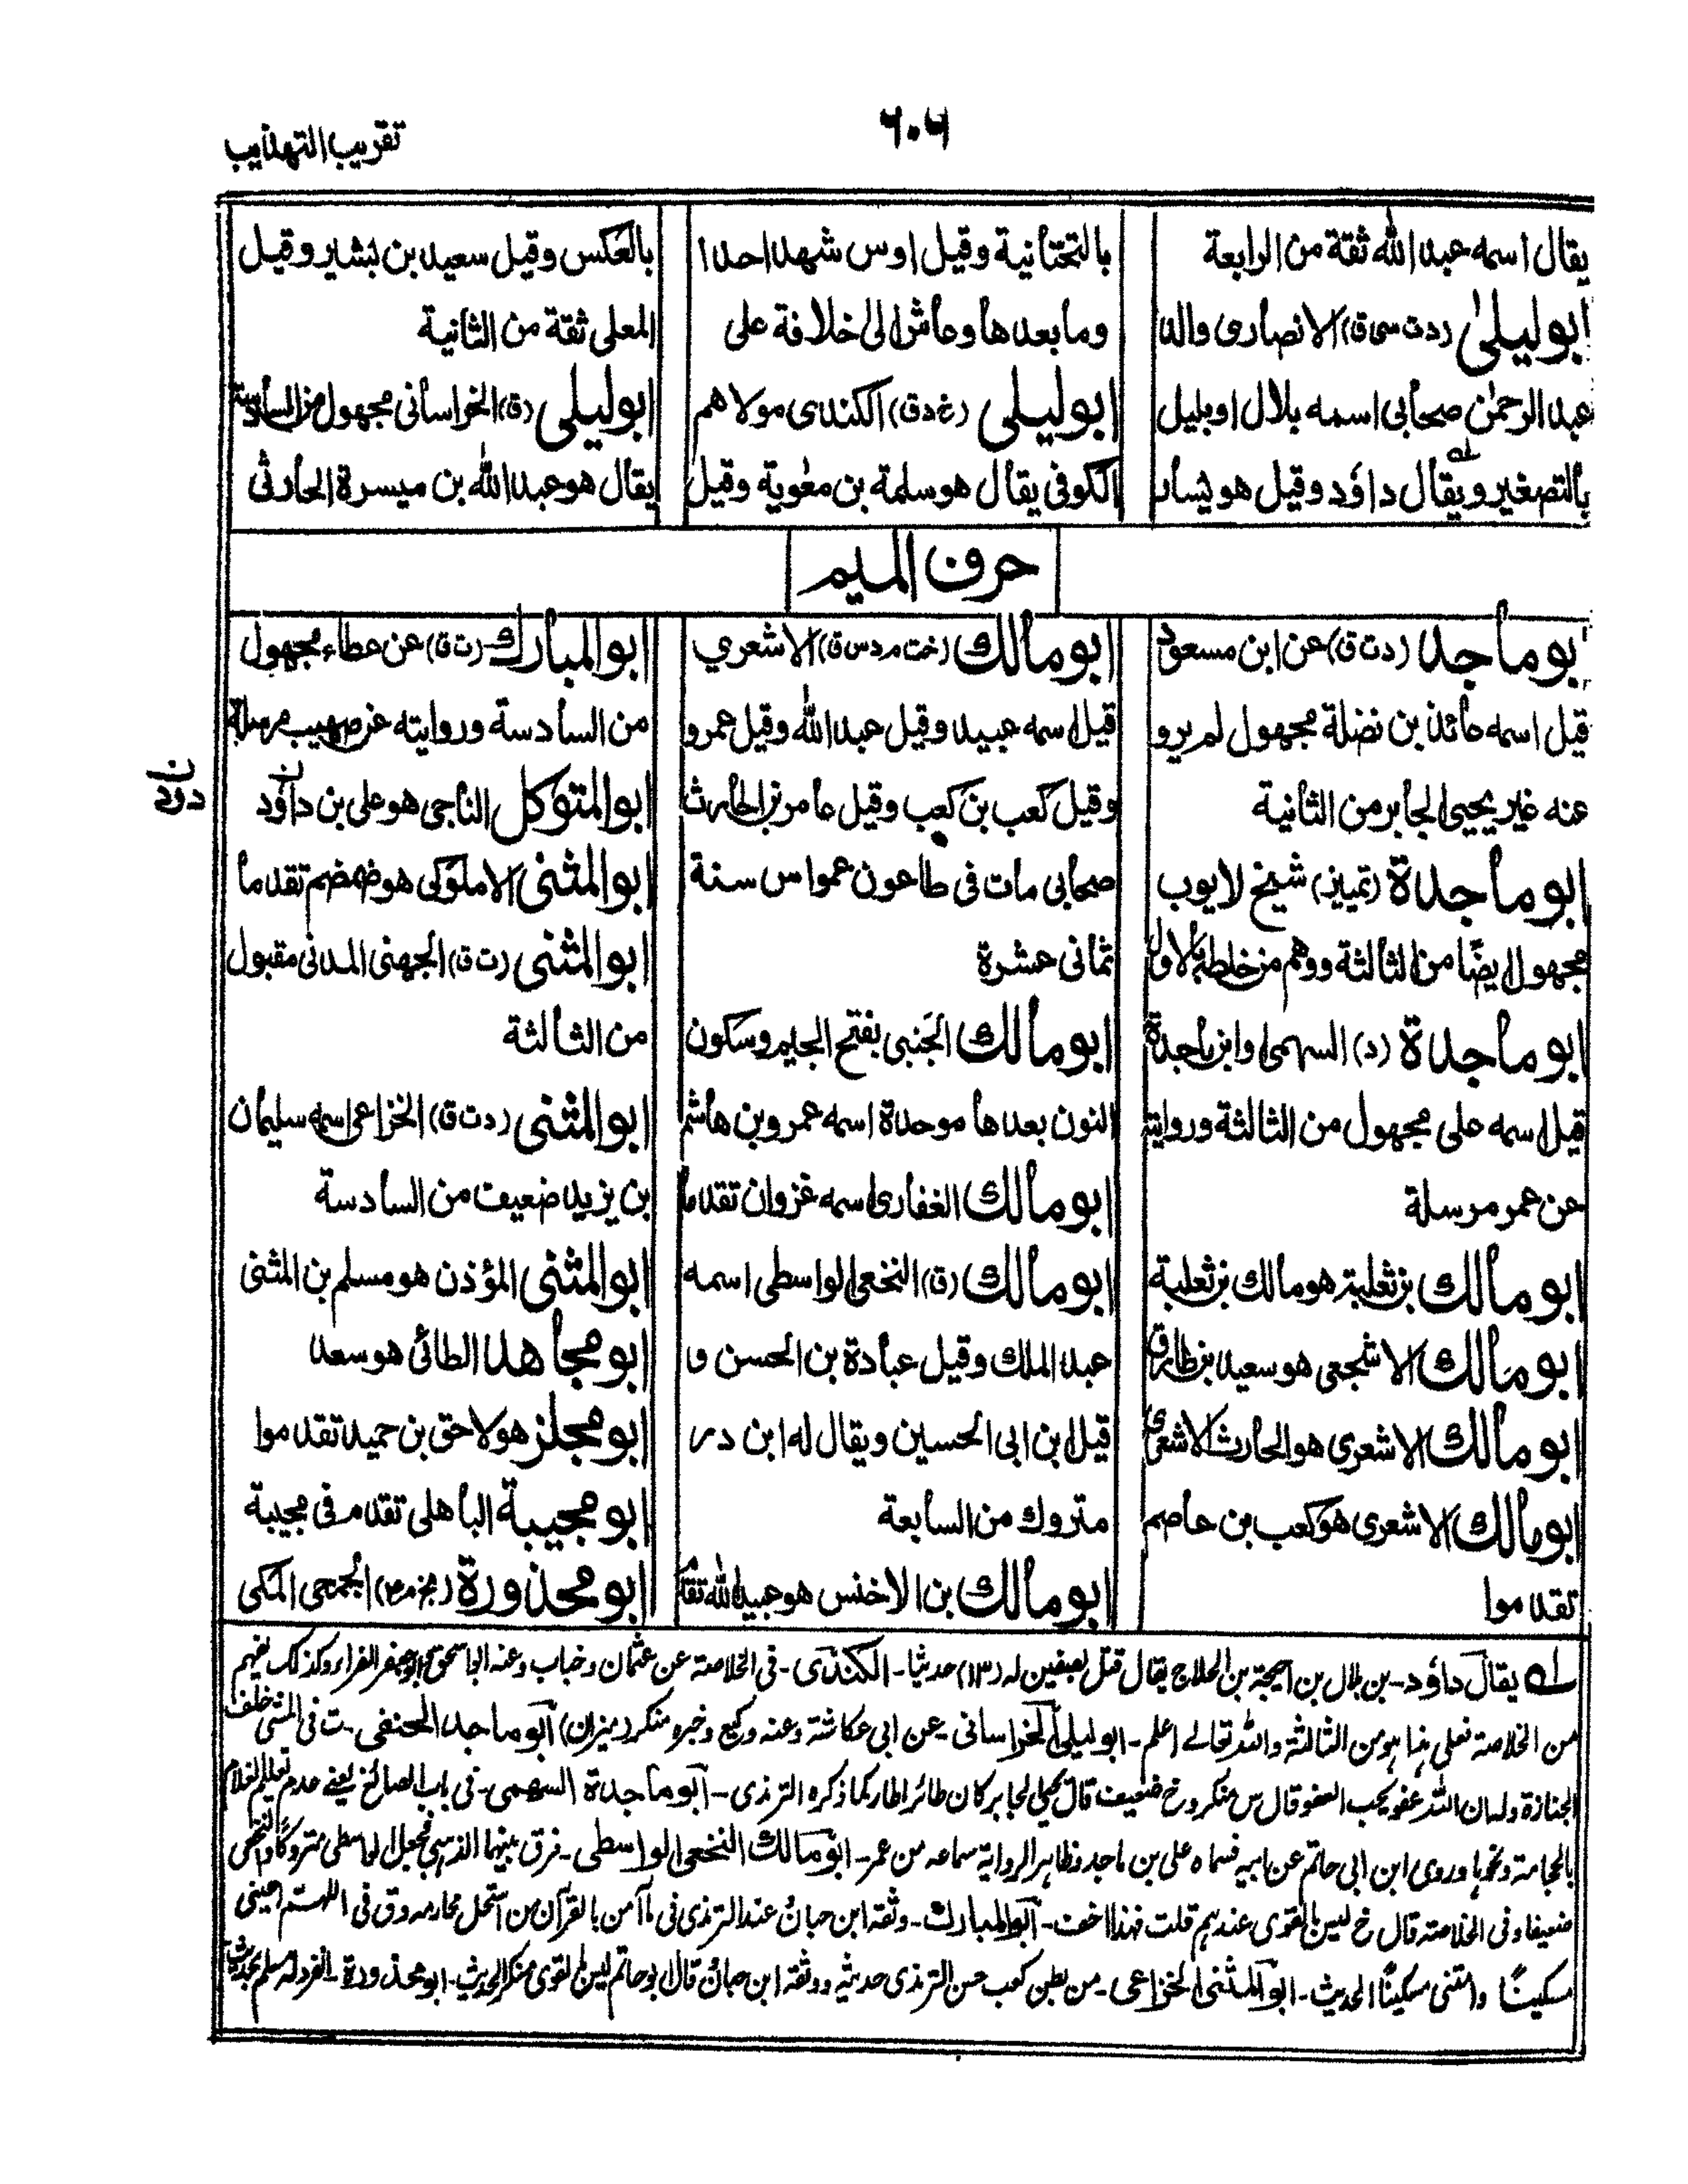 ٦٠٦
تقريب التهذيب
يقال اسمه عبد الله ثقة من الرابعة
ابو ليلىٰ (د ت سى ق) الانصارى والد
عبد الرحمٰن صحابى اسمه بلال او بليل
بالتصغير ويقال داؤد وقيل هو يسار
بالتحتانية وقيل اوس شهد احدا
وما بعدها وعاش الى خلافة على
ابو ليلى (غ د ق) الكندى مولاهم
الكوفى يقال هو سلمة بن معٰوية وقيل
بالعكس وقيل سعيد بن بشير وقيل
المعلى ثقة من الثانية
ابو ليلى (ق) الخراسانى مجهول من السادسة
يقال هو عبد الله بن ميسرة الحارثى
حرف الميم
ابو ماجد (د ت ق) عن ابن مسعود
قيل اسمه عائذ بن نضلة مجهول لم يرو
عنه غير يحيى الجابر من الثانية
ابو ماجدة (تمييز) شيخ لايوب
مجهول ايضًا من الثالثة ووهم من خلطه بالاول
ابو ماجدة (د) السهمى وابن ماجدة
قيل اسمه على مجهول من الثالثة وروايته
عن عمر مرسلة
ابو مالك بن ثعلبة هو مالك بن ثعلبة
ابو مالك الاشجعى هو سعيد بن طارق
ابو مالك الاشعرى هو الحارث الاشعرى
ابو مالك الاشعرى هو كعب بن عاصم
تقدموا
ابو مالك (خت م د س ق) الاشعري
قيل اسمه عبيد وقيل عبد الله وقيل عمرو
وقيل كعب بن كعب وقيل عامر بن الحارث
صحابى مات فى طاعون عمواس سنة
ثمانى عشرة
ابو مالك الجَنبى بفتح الجيم وسكون
النون بعدها موحدة اسمه عمرو بن هاشم
ابو مالك الغفارى اسمه غزوان تقدما
ابو مالك (ق) النخعى الواسطى اسمه
عبد الملك وقيل عبادة بن الحسن و
قيل ابن ابى الحسين ويقال له ابن در
متروك من السابعة
ابو مالك بن الاخنس هو عبيد الله تقدم
ابو المبارك (ت ق) عن عطاء مجهول
من السادسة وروايته عن صهيب مرسلة
ابو المتوكل الناجى هو على بن داؤد
دؤد ن
ابو المثنى الاملوكى هو ضمضم تقدما
ابو المثنى (ت ق) الجهنى المدنى مقبول
من الثالثة
ابو المثنى (د ت ق) الخزاعى اسمه سليمان
بن يزيد ضعيف من السادسة
ابو المثنى المؤذن هو مسلم بن المثنى
ابو مجاهد الطائى هو سعد
ابو مجلز هو لاحق بن حميد تقدموا
ابو مجيبة الباهلى تقدم فى مجيبة
ابو محذورة (بخ م ٤) الجمحى المكى
له يقال داؤد - بن بلال بن احيحة بن الجلاح يقال قتل بصفين له (١٣) حديثا - الكندى - فى الخلاصة عن عثمان وخباب وعنه ابو اسحق وابو جعفر الفراء وكذلك يفهم
من الخلاصة فعلى هذا هو من الثالثة والله تعالى اعلم - ابو ليلى الخراسانى - عن ابى عكاشة وعنه وكيع وخبره منكر (ميزان) ابو ماجد الحنفى - ت فى المشى خلف
الجنازة وله ان الله عفو يحب العفو قال س منكر و خ ضعيف قال يحيى الجابر كان طائر اطار كما ذكره الترمذى - ابو ماجدة السهمى - فى باب الصائغ يعنى عدم تعليم الغلام
بالحجامة ونحوها وروى ابن ابى حاتم عن ابيه فسماه على بن ماجد وظاهر الرواية سماعه من عمر - ابو مالك النخعى الواسطى - فرق بينهما الذهبى فجعل الواسطى متروكًا والنخعى
ضعيفا وفى الخلاصة قال خ ليس بالقوى عندهم قلت فهذا اخف - ابو المبارك - وثقه ابن حبان عند الترمذى فى ما آمن بالقرآن من استحل محارمه و ق فى اللهم احينى
مسكينًا وامتنى مسكينًا الحديث - ابو المثنى الخزاعى - من بطن كعب حسن الترمذى حديثه ووثقه ابن حبان قال ابو حاتم ليس بالقوى منكر الحديث - ابو محذورة - انفرد له مسلم بحديث